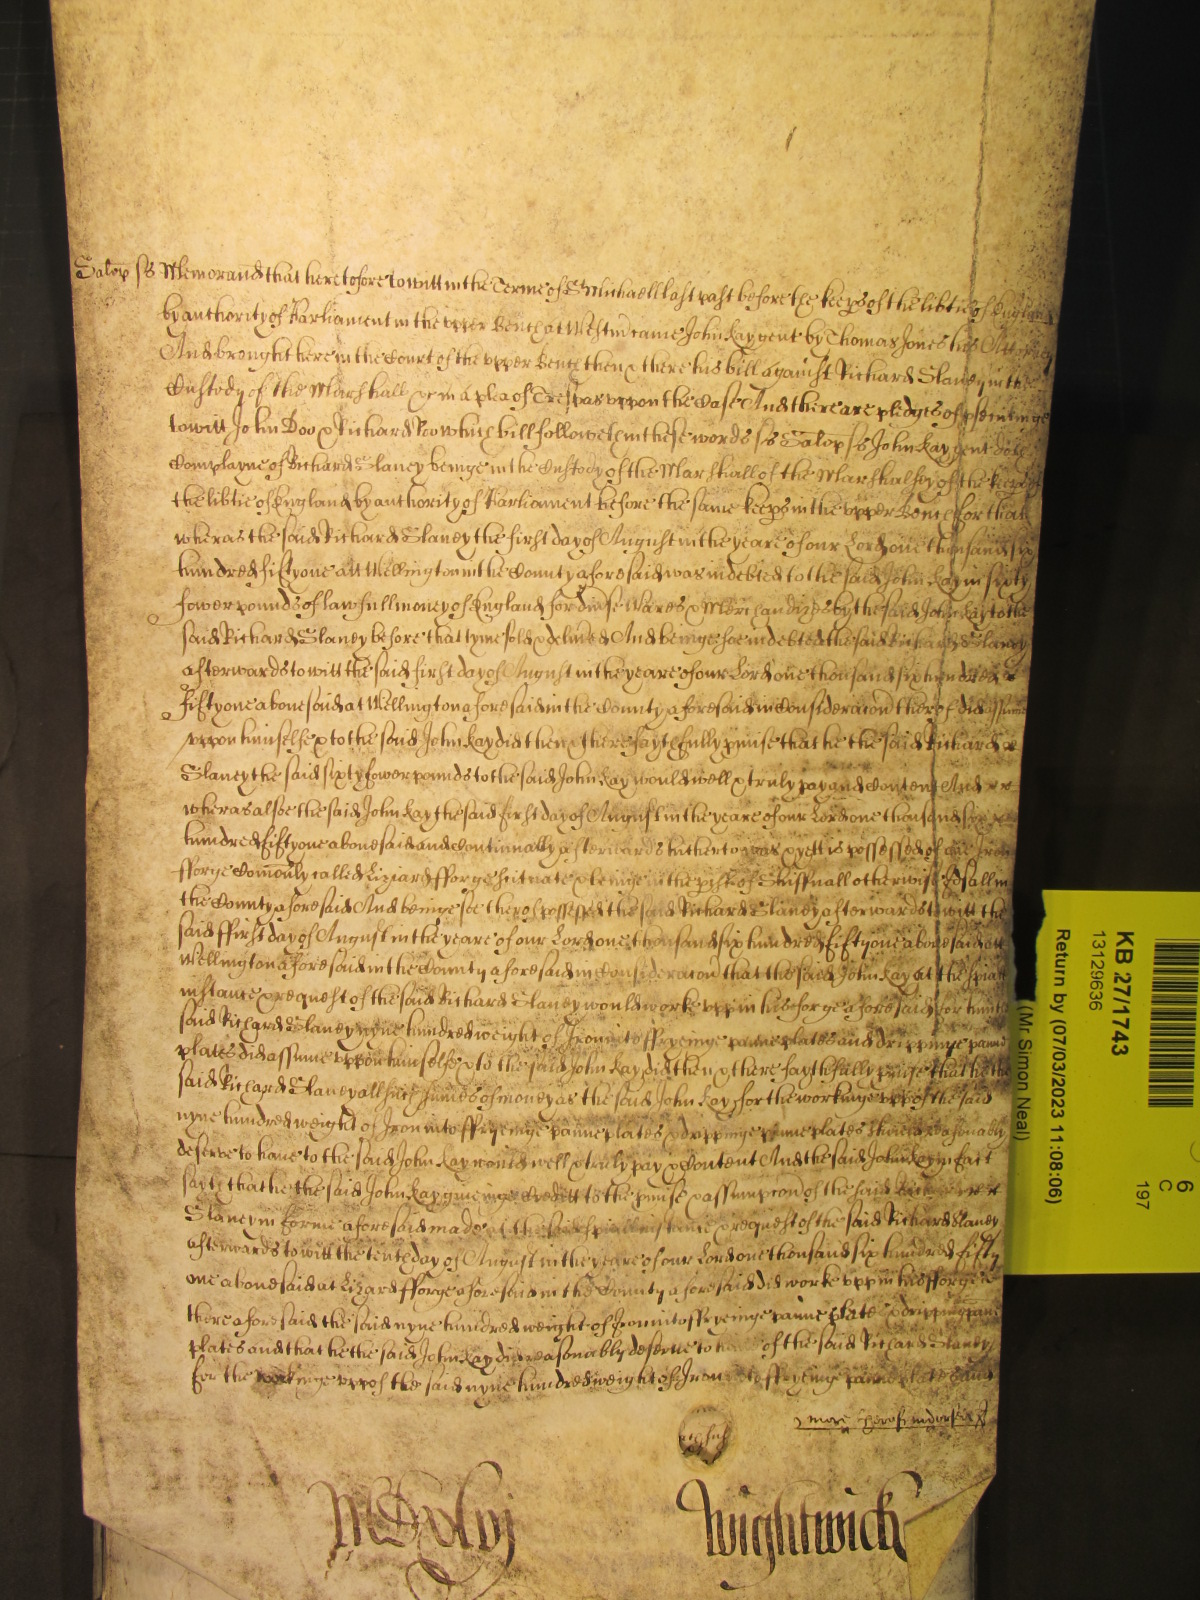 Salop ss Memorand that heretofore to witt in the Terme of St Michaell last past before the keeps of the libtie of England
by authority of Parliament in the vpper Bench at Westmr came John Kay gent by Thomas Jones his Attorney
And brought here in the Court of the vpper Bench then & there his bill against Richard Slaney in the
Custody of the Marshall &c in a plea of Trespas vppon the Case And there are pledges of psecutinge
to witt John Doo & Richard Roo which bill followeth in these words ss Salop ss John Kay gent doth
Complayne of Richard Slaney beinge in the Custody of the Marshall of the Marshalsey of the keeps of
the libtie of England by authority of Parliament before the same keeps in the vpper Bench for that
wheras the said Richard Slaney the first day of August in the yeare of our Lord one thousand six
hundred fifty one att Wellington in the County aforesaid was indebted to the said John Kay in sixty
fower pounds of lawfull money of England for divse Wares & Merchandizes by the said John Kay to the
said Richard Slaney before that tyme sold & delived And beinge soe indebted the said Richard Slaney
afterwards to witt the said first day of August in the yeare of our Lord one thousand six hundred
fifty one abovesaid at Wellington aforesaid in the County aforesaid in Consideracon therof did assume
vppon himselfe & to the said John Kay did then & there faythfully pmise that he the said Richard
Slaney the said sixty fower pounds to the said John Kay would well & truly pay and Content And
wheras alsoe the said John Kay the said first day of August in the yeare of our Lord one thousand six
hundred fifty one abovesaid and Continually afterwards hitherto was & yett is possessed of one Iron
fforge Comonly called Lizard fforge scituate & beinge in the pish of Shiffnall otherwise Idsall in
the County aforesaid And beinge soe therof possessed the said Richard Slaney afterwards to witt the
said ffirst day of August in the yeare of our Lord one thousand six hundred fifty one abovesaid att
Wellington aforesaid in the County aforesaid in Consideracon that the said John Kay at the spiall
instance & request of the said Richard Slaney would worke vpp in his forge aforesaid for him the
said Richard Slaney nyne hundred weight of Iron into ffryeinge panne plates and drippinge panne
plates did assume vppon himselfe & to the said John Kay did then & there faythfully pmise that he the
said Richard Slaney all such summes of money as the said John Kay for the workinge vpp of the said
nyne hundred weight of Iron into ffryeinge panne plates & drippinge panne plates should reasonably
deserve to have to the said John Kay would well & truly pay & Content And the said John Kay in fact
sayth that he the said John Kay giveinge Creditt to the pmise & assumpcon of the said Richard
Slaney in forme aforesaid made at the said spiall instance & request of the said Richard Slaney
afterwards to witt the tenth day of August in the yeare of our Lord one thousand six hundred fifty
one abovesaid at Lizard fforge aforesaid in the County aforesaid did worke vpp in his fforge
there aforesaid the said nyne hundred weight of Iron into ffryeinge panne plates & drippinge panne
plates and that he the said John Kay did reasonably deserve to have of the said Richard Slaney
for the workinge vpp of the said nyne hundred weight of Iron into ffryeinge panne plates and
more therof indorsed
MDxlvj
Wightwick
KB 27/1743
13129636
Return by (07/03/2023 11:08:06)
(Mr. Simon Neal)
6
C
197